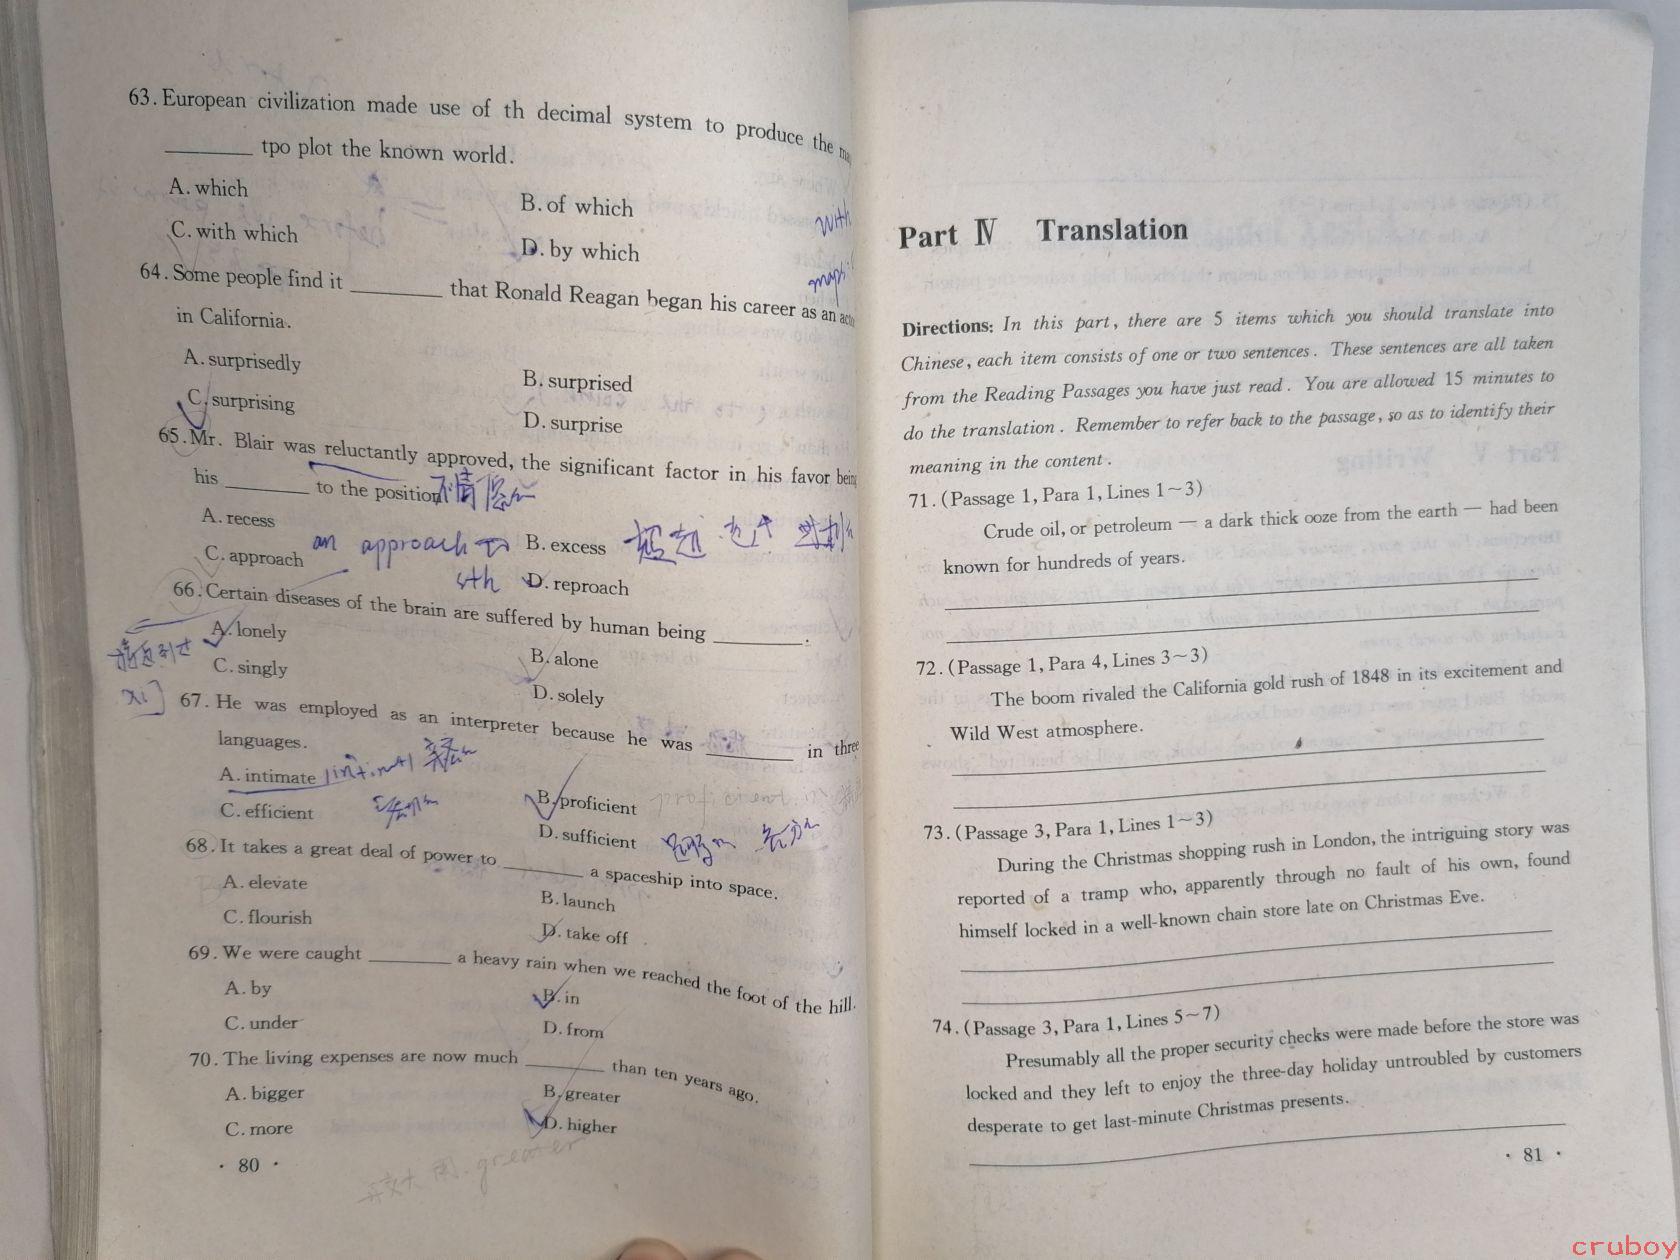 63. European civilization made use of th decimal system to produce the
________ tpo plot the known world.
A. which
B. of which
C. with which
D. by which
with
maps
64. Some people find it ________ that Ronald Reagan began his career as an
in California.
A. surprisedly
B. surprised
C. surprising
D. surprise
65. Mr. Blair was reluctantly approved, the significant factor in his favor being
his ________ to the position
不情愿
A. recess
B. excess
C. approach
D. reproach
an approach to
sth
66. Certain diseases of the brain are suffered by human being ________.
A. lonely
B. alone
C. singly
D. solely
67. He was employed as an interpreter because he was ________ in three
languages.
A. intimate
B. proficient
proficient in
C. efficient
D. sufficient
68. It takes a great deal of power to ________ a spaceship into space.
A. elevate
B. launch
C. flourish
D. take off
69. We were caught ________ a heavy rain when we reached the foot of the hill.
A. by
B. in
C. under
D. from
70. The living expenses are now much ________ than ten years ago.
A. bigger
B. greater
C. more
D. higher
greater
· 80 ·
Part Ⅳ Translation
Directions: In this part, there are 5 items which you should translate into
Chinese, each item consists of one or two sentences. These sentences are all taken
from the Reading Passages you have just read. You are allowed 15 minutes to
do the translation. Remember to refer back to the passage, so as to identify their
meaning in the content.
71. (Passage 1, Para 1, Lines 1~3)
Crude oil, or petroleum — a dark thick ooze from the earth — had been
known for hundreds of years.
72. (Passage 1, Para 4, Lines 3~3)
The boom rivaled the California gold rush of 1848 in its excitement and
Wild West atmosphere.
73. (Passage 3, Para 1, Lines 1~3)
During the Christmas shopping rush in London, the intriguing story was
reported of a tramp who, apparently through no fault of his own, found
himself locked in a well-known chain store late on Christmas Eve.
74. (Passage 3, Para 1, Lines 5~7)
Presumably all the proper security checks were made before the store was
locked and they left to enjoy the three-day holiday untroubled by customers
desperate to get last-minute Christmas presents.
· 81 ·
cruboy